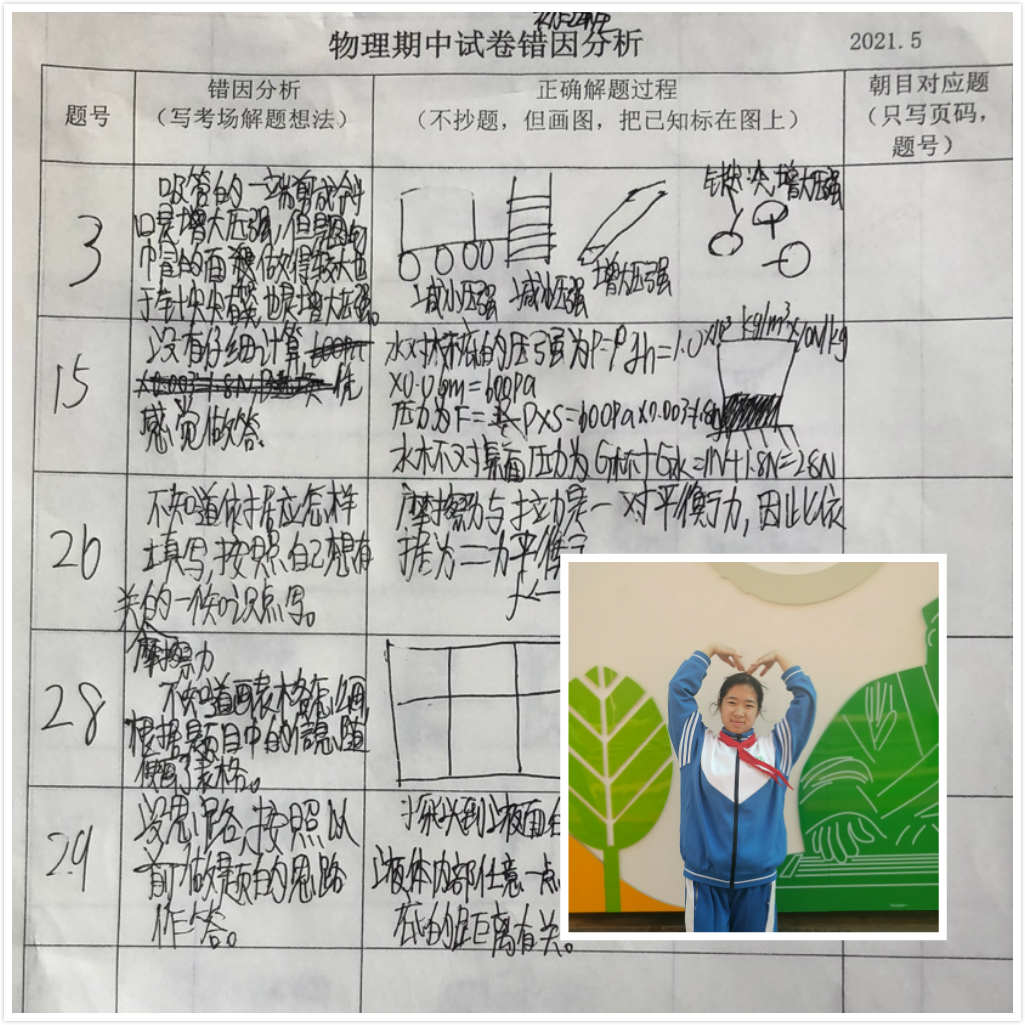 物理期中试卷错因分析
2021.5
题号
错因分析
（写考场解题想法）
正确解题过程
（不抄题，但画图，把已知标在图上）
朝目对应题
（只写页码，
题号）
3
吸管的一端剪成斜
口是增大压强，但是图
的面
也是增大压强。
减小压强
减小压强
增大压强
增大压强
15
没有仔细计算
凭
感觉做答.
水对杯底的压强为P=ρgh=1.0×10³kg/m³×10N/kg
×0.06m=600Pa
压力为F=P×S=600Pa×0.003=1.8N
水杯对桌面压力为G杯+G水=1N+1.8N=2.8N
26
不知道依据应怎样
填写,按照自己想有
关的一些知识点写。
摩擦力与拉力是一对平衡力,因此依
据为二力平衡
f
28
摩擦力
不知道画表格怎么画,
根据题目中的
画了表格。
29
没思路,按照以
前做题的思路
作答。
探头到液面
液体内部任意一点
底的距离有关。